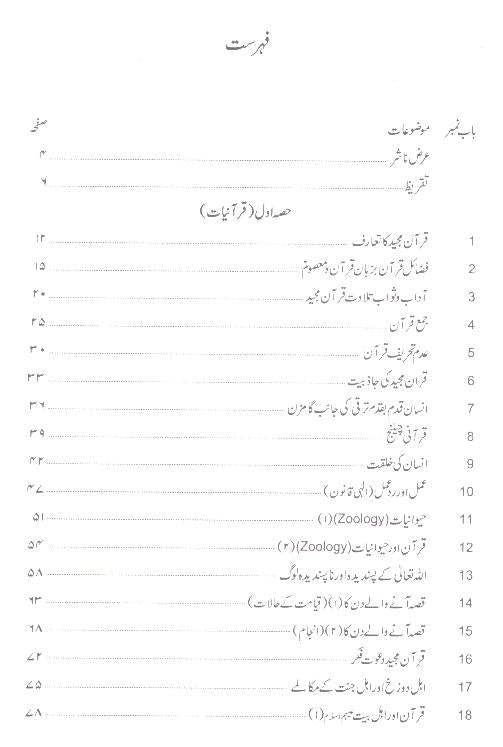 فہرست
باب نمبر موضوعات صفحہ
عرض ناشر ۴
تقریظ ۶
حصہ اول (قرآنیات)
1 قرآن مجید کا تعارف ۱۲
2 فضائل قرآن بزبان قرآن و معصومؑ ۱۵
3 آداب و ثواب تلاوت قرآن مجید ۲۰
4 جمع قرآن ۲۵
5 عدم تحریف قرآن ۳۰
6 قران مجید کی جاذبیت ۳۳
7 انسان قدم بقدم ترقی کی جانب گامزن ۳۶
8 قرآنی چیلنج ۳۹
9 انسان کی خلقت ۴۲
10 عمل اور ردعمل (الہی قانون) ۴۷
11 حیوانیات (Zoology) (۱) ۵۱
12 قرآن اور حیوانیات (Zoology) (۲) ۵۴
13 اللہ تعالیٰ کے پسندیدہ اور ناپسندیدہ لوگ ۵۸
14 قصہ آنے والے دن کا (۱) (قیامت کے حالات) ۶۳
15 قصہ آنے والے دن کا (۲) (انجام) ۶۸
16 قرآن مجید دعوت فکر ۷۲
17 اہل دوزخ اور اہل جنت کے مکالمے ۷۵
18 قرآن اور اہل بیت علیہم السلام (۱) ۷۸